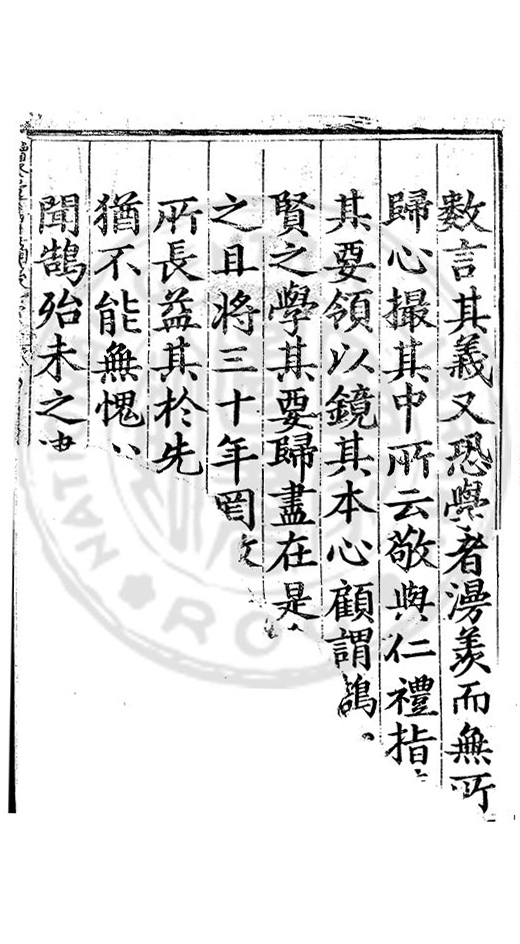 数言其義又恐學者漫羨而無所
歸心撮其中所云敬與仁禮指
其要領以鏡其本心顧謂鵠
賢之學其要歸盡在是
之且將三十年罔
所長益其於先
猶不能無愧
聞鵠殆未之